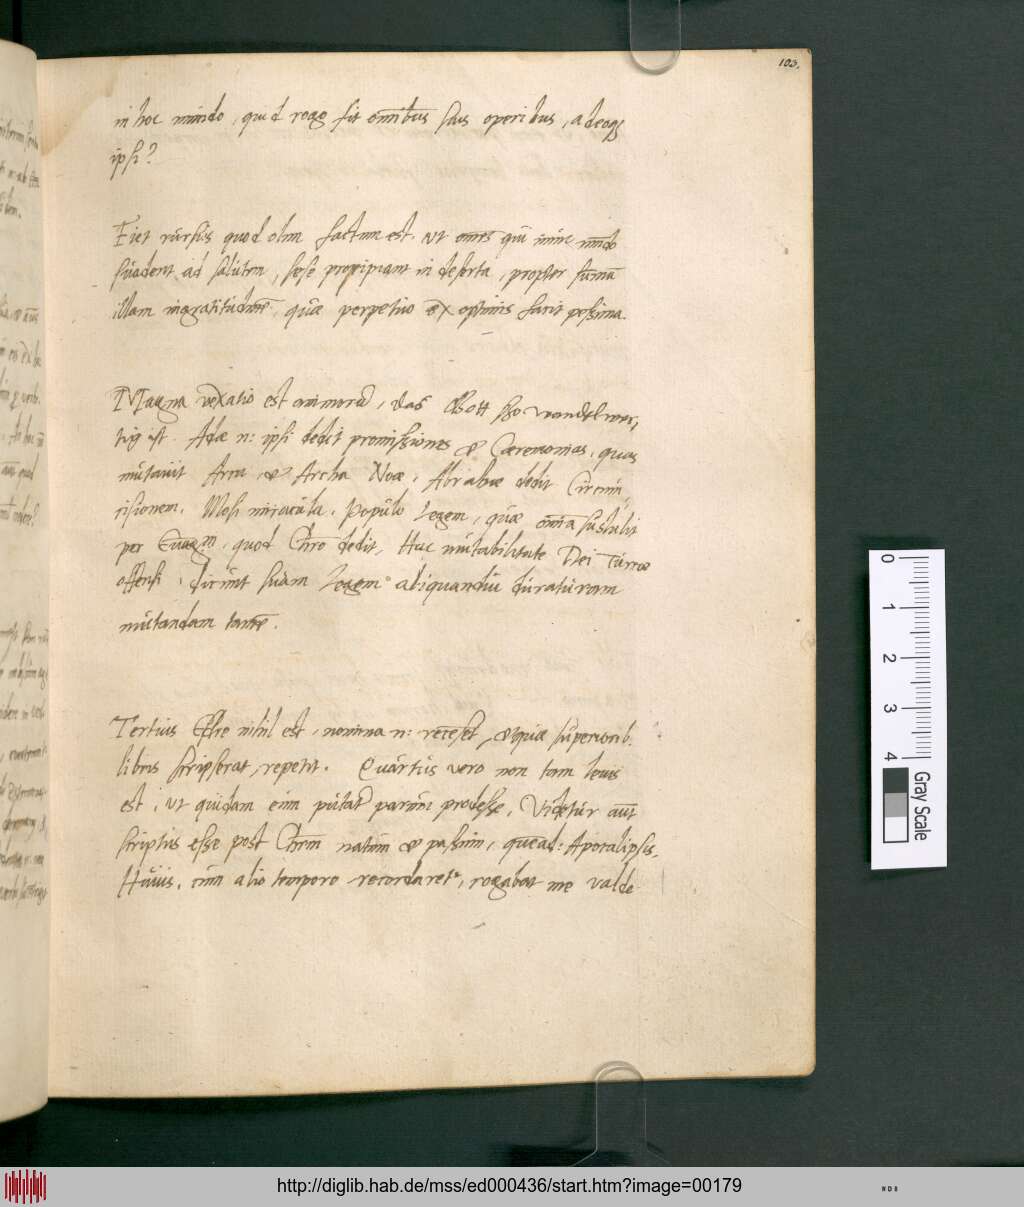 103.
in hoc mundo, quid rogo sit omnibus suis operibus, adeoq3
ipsi?
Fiet rursus quod olim factum est, ut omes qui nunc mundo
suadent ad salutem, sese proripiant in deserta, propter sumā
illam ingratitudinē, quae perpetuo ex optimis facit pessima.
Magna vexatio est animorū, das Gott sso wandelwer,
tig ist. Adae n: ipsi dedit promissiones & Caeremonias, quas
mutavit Arcu & Archa Noae, Abrahae dedit Circum
cisionem, Mosi miracula, Populo Legem, quae omīa sustulit
per Euagm, quod Chro dedit, Hac mutabilitate Dei Turcae
offensi, dicunt suam Legem aliquandiu duraturam
mutandam tamē.
Tertius Esdrae nihil est, nomina n: recēset, & quae superiorib.
libris scripserat, repetit. Quartus vero non tam levis
est, ut quidam eum putāt parum prodesse, Videtur autē
scriptus esse post Chrm natum & passum, quēad: Apocalipsis.
Huius, cum alio tempore recordaret, rogabat me valde
0 1 2 3 4
Gray Scale
http://diglib.hab.de/mss/ed000436/start.htm?image=00179